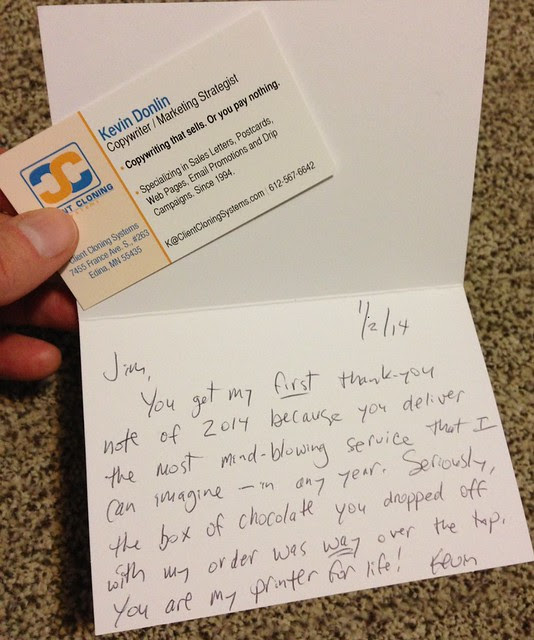 Kevin Donlin
Copywriter / Marketing Strategist
• Copywriting that sells. Or you pay nothing.
• Specializing in Sales Letters, Postcards,
Web Pages, Email Promotions and Drip
Campaigns. Since 1994.
K@ClientCloningSystems.com | 612-567-6642
NT CLONING
Client Cloning Systems
7455 France Ave. S., #263
Edina, MN 55435
1/2/14
Jim,
You get my first thank-you
note of 2014 because you deliver
the most mind-blowing service that I
can imagine — in any year. Seriously,
the box of chocolate you dropped off
with my order was way over the top.
You are my printer for life! Kevin